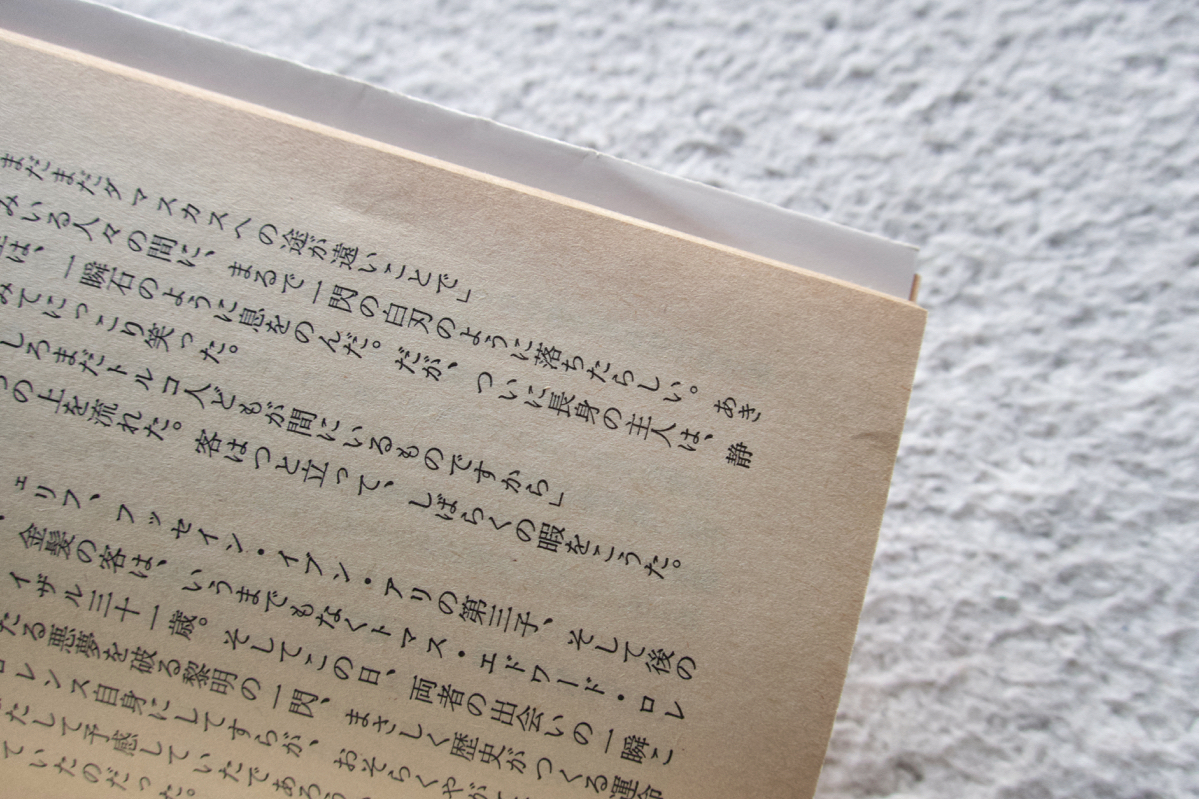 まだまだダマスカスへの途が遠いことで」
みいる人々の間に、まるで一閃の白刃のように落ちたらしい。あき
は、一瞬石のように息をのんだ。だが、ついに長身の主人は、静
みてにっこり笑った。
しろまだトルコ人どもが間にいるものですから」
の上を流れた。客はつと立って、しばらくの暇をこうた。
ェリフ、フッセイン・イブン・アリの第三子、そして後の
、金髪の客は、いうまでもなくトマス・エドワード・ロレ
イザル三十一歳。そしてこの日、両者の出会いの一瞬こ
たる悪夢を破る黎明の一閃、まさしく歴史がつくる運命
レンス自身にしてすらが、おそらくやが
たして予感していたであろう
ていたのだった。